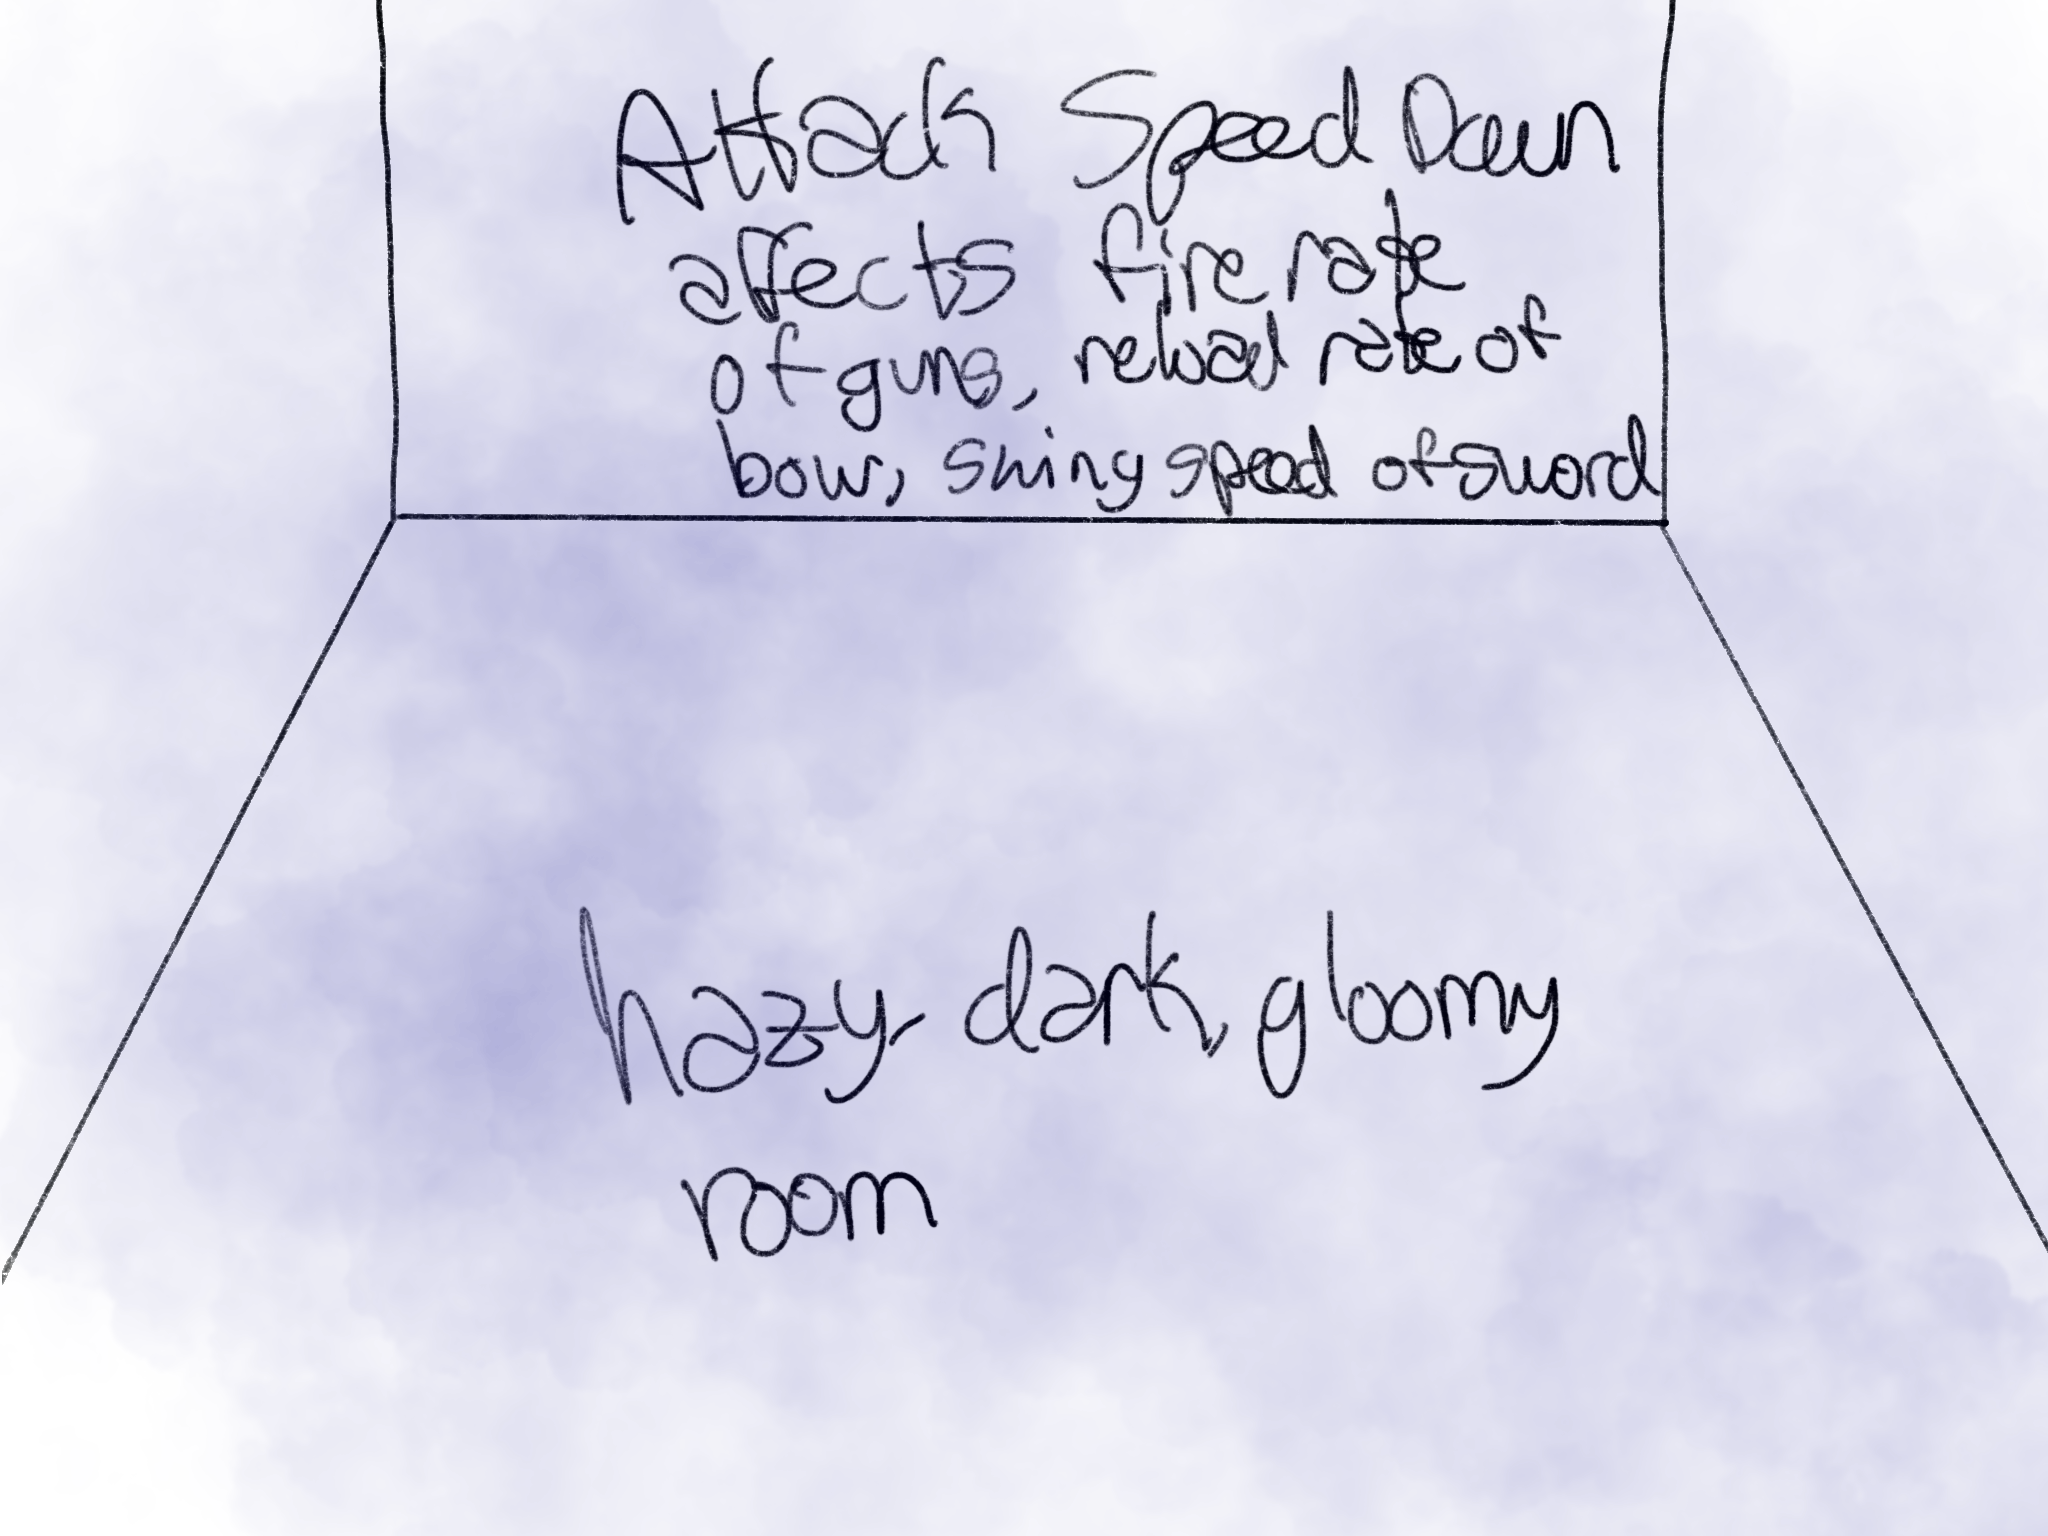 Attack Speed Down
affects fire rate
of guns, reload rate of
bow, swing speed of sword
hazy, dark, gloomy
room